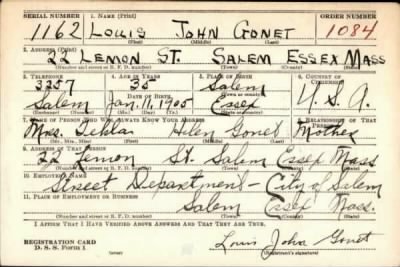 SERIAL NUMBER 1. NAME (Print) ORDER NUMBER
1162 LOUIS JOHN GONET 1084
(First) (Middle) (Last)
2. ADDRESS (Print)
22 LEMON ST. SALEM ESSEX MASS
(Number and street or R. F. D. number) (Town) (County) (State)
3. TELEPHONE 4. AGE IN YEARS 5. PLACE OF BIRTH 6. COUNTRY OF CITIZENSHIP
3257 35 Salem
DATE OF BIRTH (Town)
Salem Jan. 11, 1905 Essex U. S. A.
(Exchange) (Number) (Mo.) (Day) (Yr.) (State or country)
7. NAME OF PERSON WHO WILL ALWAYS KNOW YOUR ADDRESS 8. RELATIONSHIP OF THAT PERSON
Mrs. Tekla Helen Gonet Mother
(Mr., Mrs., Miss) (First) (Middle) (Last)
9. ADDRESS OF THAT PERSON
22 Lemon St. Salem Essex Mass
(Number and street or R. F. D. number) (Town) (County) (State)
10. EMPLOYER'S NAME
Street Department - City of Salem
11. PLACE OF EMPLOYMENT OR BUSINESS
Salem Essex Mass.
(Number and street or R. F. D. number) (Town) (County) (State)
I AFFIRM THAT I HAVE VERIFIED ABOVE ANSWERS AND THAT THEY ARE TRUE.
REGISTRATION CARD
D. S. S. Form 1
Louis John Gonet
(Registrant's signature)